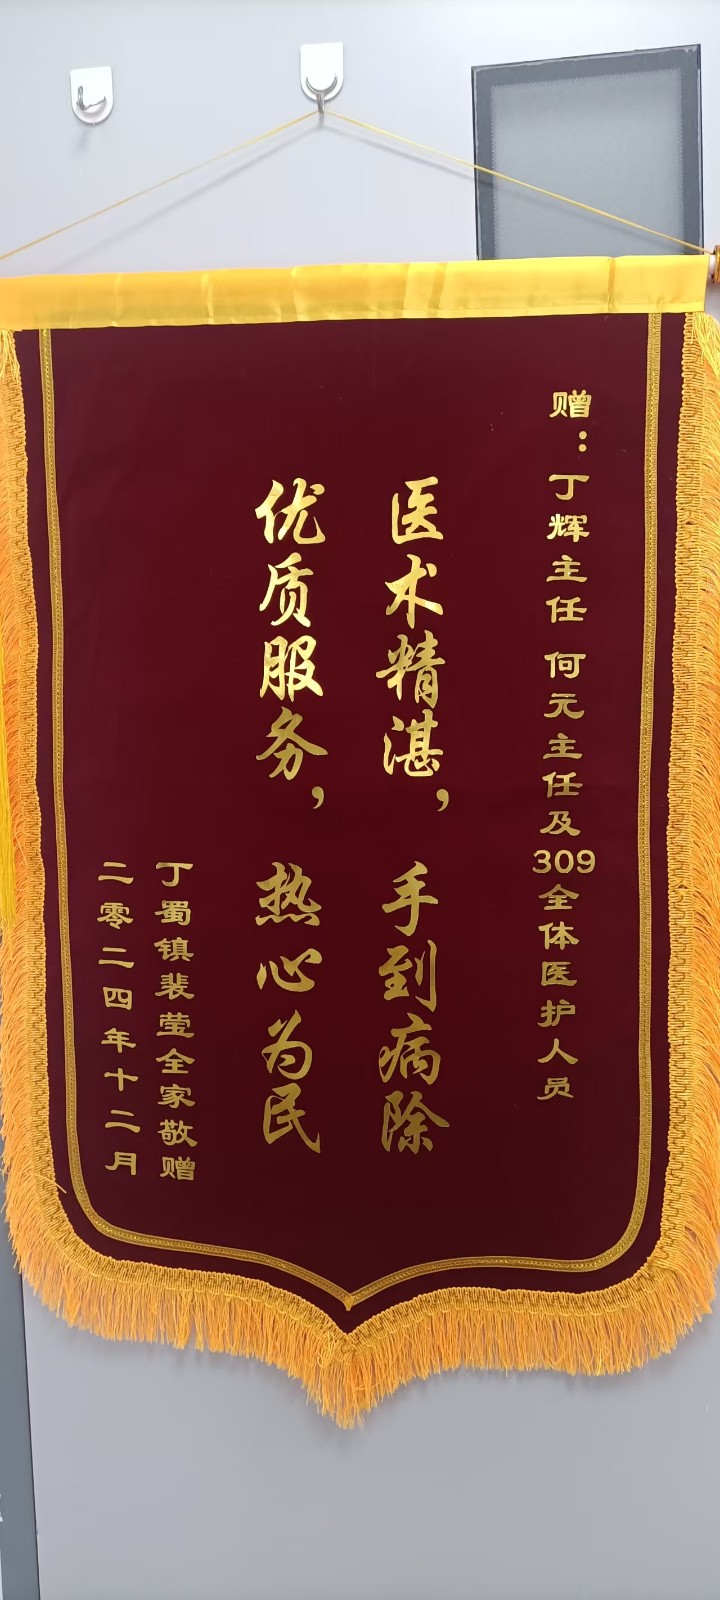 赠：丁辉主任 何元主任及309全体医护人员
医术精湛，手到病除
优质服务，热心为民
丁蜀镇裴莹全家敬赠
二零二四年十二月